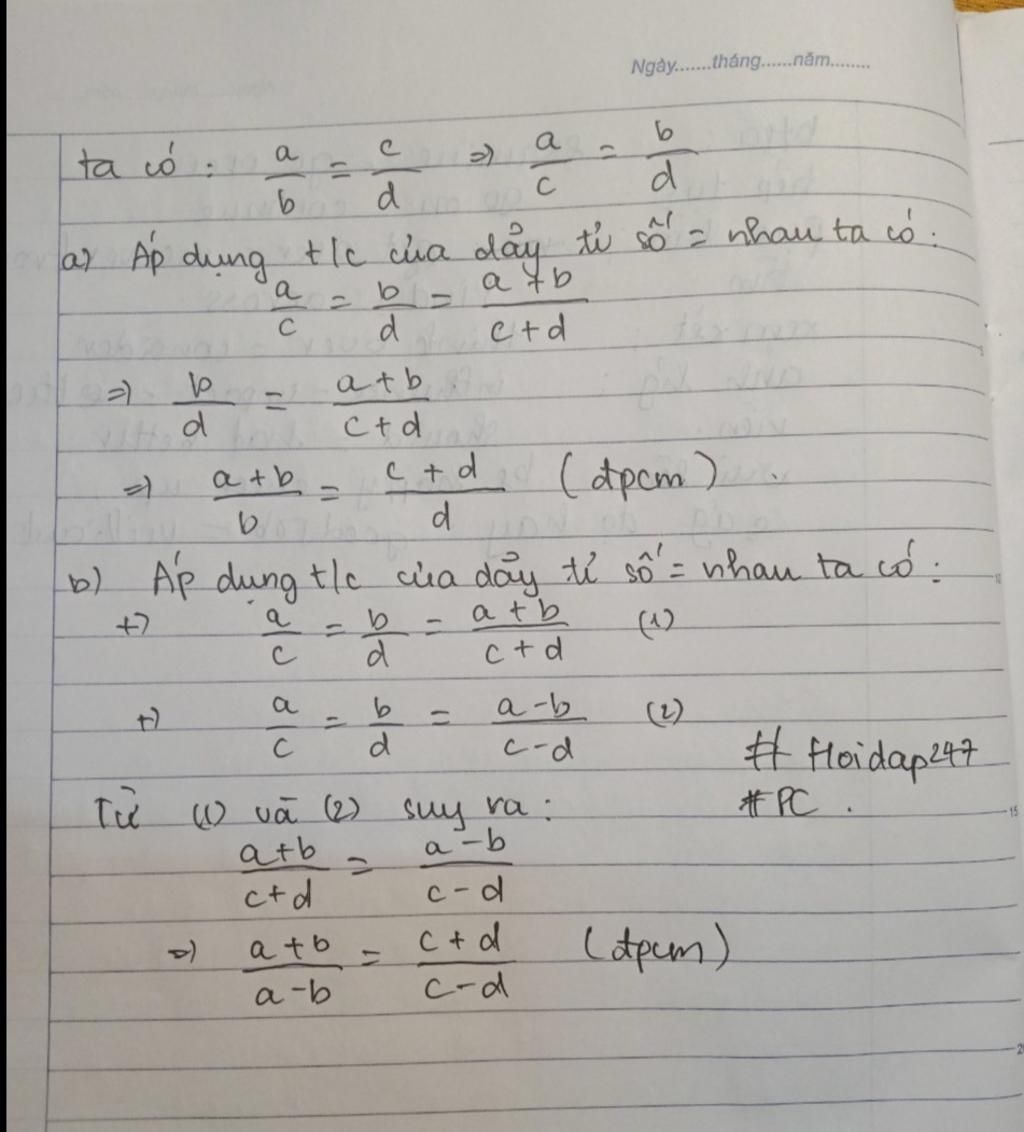 Ngày.......tháng......năm........
ta có : a/b = c/d => a/c = b/d
a) Áp dụng t/c của dảy tỉ số = nhau ta có :
a/c = b/d = a+b/c+d
=> b/d = a+b/c+d
=> a+b/b = c+d/d (đpcm) .
b) Áp dụng t/c của dảy tỉ số = nhau ta có :
+) a/c = b/d = a+b/c+d (1)
+) a/c = b/d = a-b/c-d (2)
# Hoidap247
Từ (1) và (2) suy ra :
#PC .
a+b/c+d = a-b/c-d
=> a+b/a-b = c+d/c-d (đpcm)
15